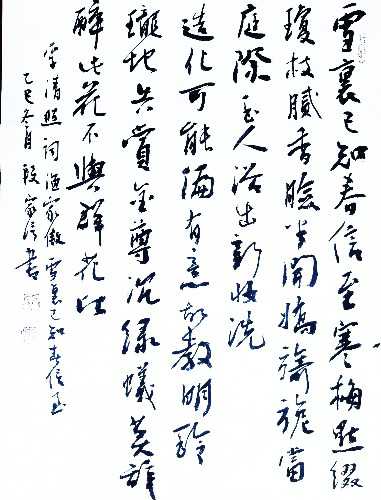 雪裏已知春信至寒梅點綴
瓊枝膩香臉半開嬌旖旎當
庭際玉人浴出新妝洗
造化可能偏有意故教明玲
瓏地共賞金尊沉綠蟻莫辭
醉此花不與群花比
李清照词渔家傲雪裏已知春信至
乙巳冬月殷家信书